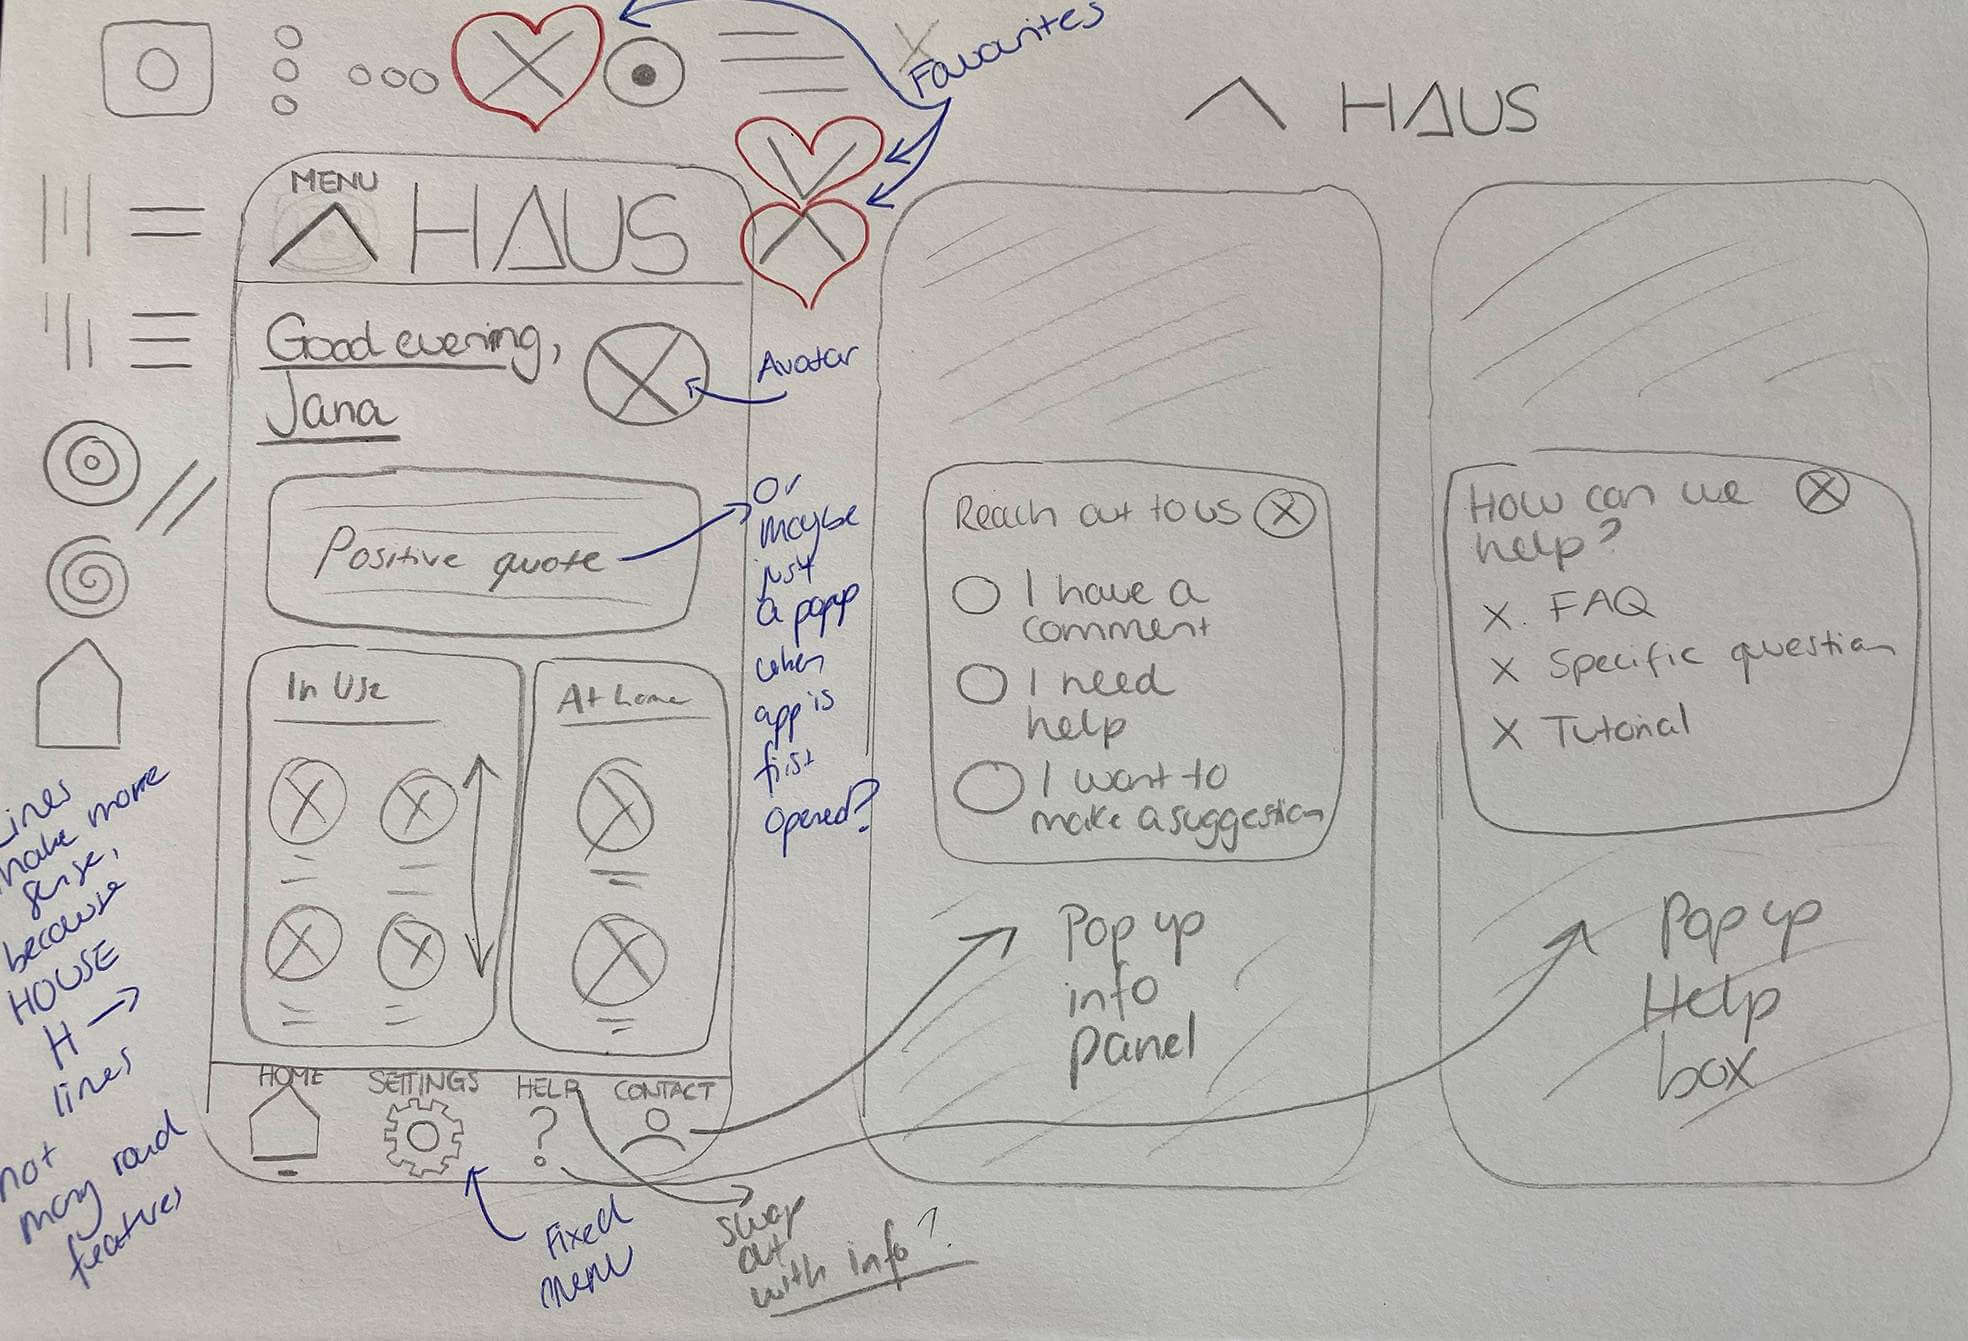 Favourites
HAUS
MENU
HAUS
Good evening,
Jana
Avatar
Positive quote
Or
maybe
just
a popup
when
app is
first
opened?
In Use
At home
HOME
SETTINGS
HELP
CONTACT
Fixed
menu
swap
out
with info?
Lines
make more
sense,
because
HOUSE
H →
lines
not
many round
features
Reach out to us
I have a
comment
I need
help
I want to
make a suggestion
Pop up
info
panel
How can we
help?
X. FAQ
X Specific question
X Tutorial
Pop up
Help
box